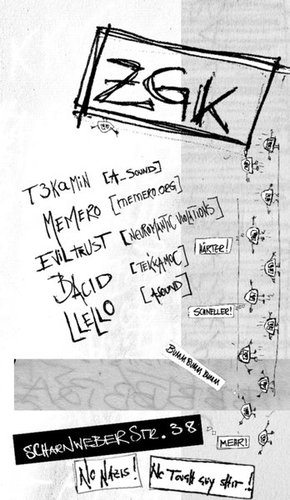 ZGK
T3KAMiN [A_SOUND]
MEMERO [MEMERO.ORG]
EVILTRUST [NEUROMANTIC VIOLATIONS]
HÄRTER!
BACID [TEKKAMOC]
LLELLO [ASOUND]
SCHNELLER!
BUMM BUMM BUMM
SCHARNWEBERSTR. 38
MEHR!
NO NAZIS!
NO TOUGH GUY SHIT!